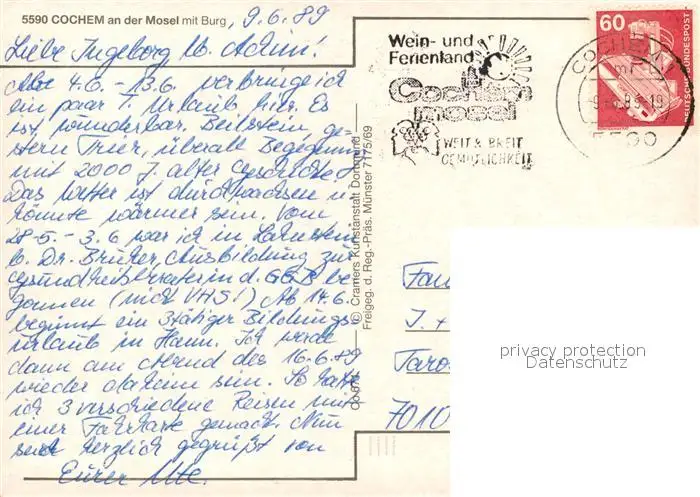 5590 COCHEM an der Mosel mit Burg
9.6.89
Liebe Ingeborg u. Achim!
Vom 4.6. - 13.6. verbringe ich
ein paar T. Urlaub hier. Es
ist wunderbar. Beilstein, ge-
stern Trier, überall Begegnung
mit 2000 J. alter Geschichte.
Das Wetter ist durchwachsen u.
könnte wärmer sein. Vom
28.5. - 3.6 war ich in Lahnstein
b. Dr. Bruker, Ausbildung zur
Gesundheitsberaterin d. GGB be-
gonnen (nicht VHS!) Ab 14.6.
beginnt ein 3tätiger Bildungs-
urlaub in Hann. Ich werde
dann am Abend des 16.6.89
wieder daheim sein. So habe
ich 3 verschiedene Reisen mit
einer Fahrkarte gemacht. Nun
seid herzlich gegrüßt von
Eurer Ute.
© Cramers Kunstanstalt Dortmund
Freigeg. d. Reg.-Präs. Münster 7175/69
Wein- und
Ferienland
Cochem
mosel
WEIT & BREIT
GEMÜTLICHKEIT
COCHEM
5590
60
DEUTSCHE BUNDESPOST
Fam
J. +
Taros
7010
privacy protection
Datenschutz